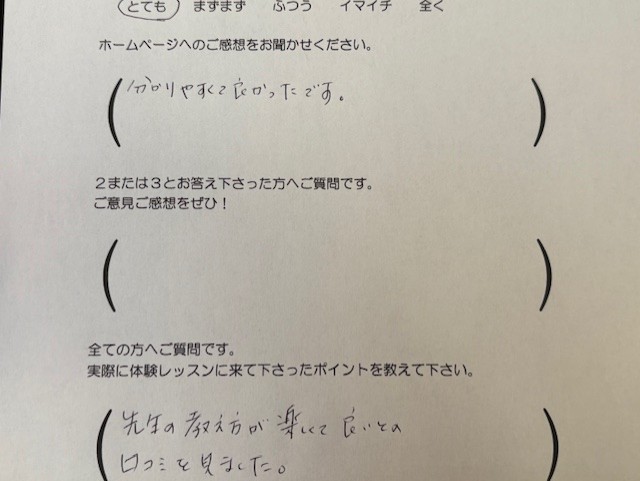 とても まずまず ふつう イマイチ 全く
ホームページへのご感想をお聞かせください。
分かりやすくて良かったです。
２または３とお答え下さった方へご質問です。
ご意見ご感想をぜひ！
全ての方へご質問です。
実際に体験レッスンに来て下さったポイントを教えて下さい。
先生の教え方が楽しくて良いとの
口コミを見ました。